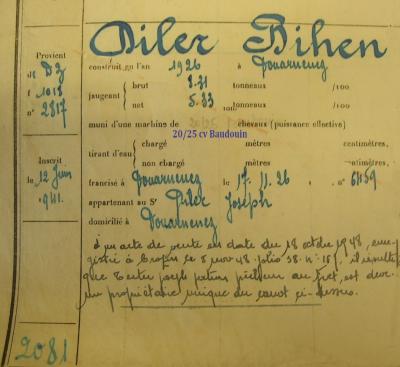 Diler Bihen
Provient
de DZ
f° 1018
n° 2817
construit en l'an 1926 à Douarnenez
jaugeant { brut 8.31 tonneaux /100
net 5.33 tonneaux /100
muni d'une machine de chevaux (puissance effective)
20/25 cv Baudouin
tirant d'eau { chargé mètres centimètres,
non chargé mètres centimètres.
Inscrit
le 12 Juin
1941.
francisé à Douarnenez le 17. 11. 26 , n° 6159
appartenant au Sr Diler Joseph
domicilié à Douarnenez
d'un acte de vente en date du 18 octobre 1948, enre-
gistré à Crozon le 5 nov 48 folio 38 n° 155 il résulte
que joseph patron pêcheur au fret, est deve
nu propriétaire unique du canot ci-dessus.
2081